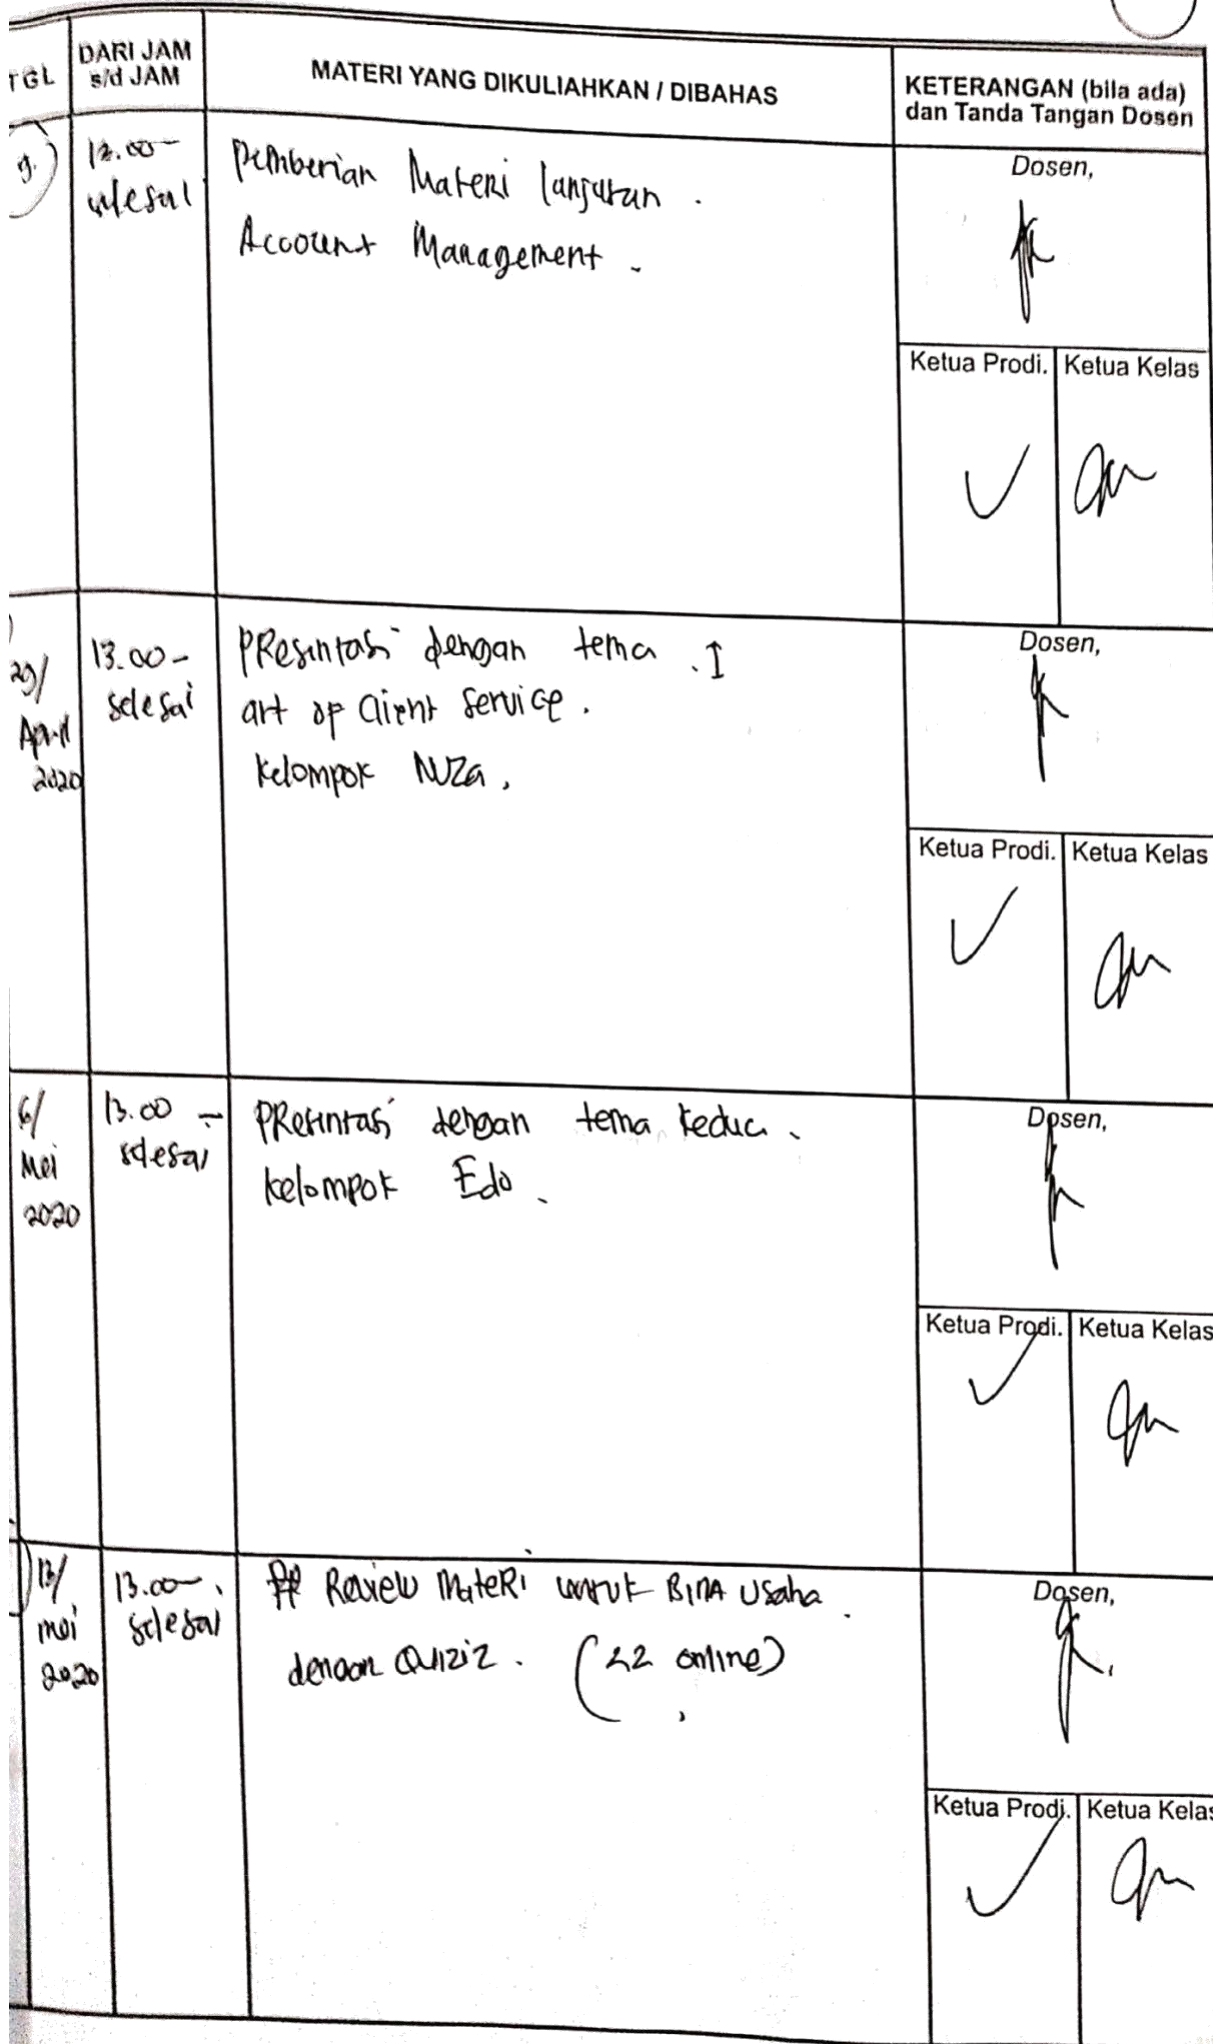 TGL
DARI JAM
s/d JAM
MATERI YANG DIKULIAHKAN / DIBAHAS
KETERANGAN (bila ada)
dan Tanda Tangan Dosen
13.00 -
selesai
Pemberian Materi lanjutan .
Account Management .
Dosen,
Ketua Prodi.
Ketua Kelas
29/
April
2020
13.00 -
selesai
PResentasi dengan tema . I
art of Client Service .
Kelompok NUZa .
Dosen,
Ketua Prodi.
Ketua Kelas
6/
Mei
2020
13.00 -
selesai
PResentasi dengan tema kedua .
kelompok Edo .
Dosen,
Ketua Prodi.
Ketua Kelas
13/
mei
2020
13.00 -
selesai
Review MateRi untuk BINA Usaha .
dengan Quiziz . (22 online)
Dosen,
Ketua Prodi.
Ketua Kelas